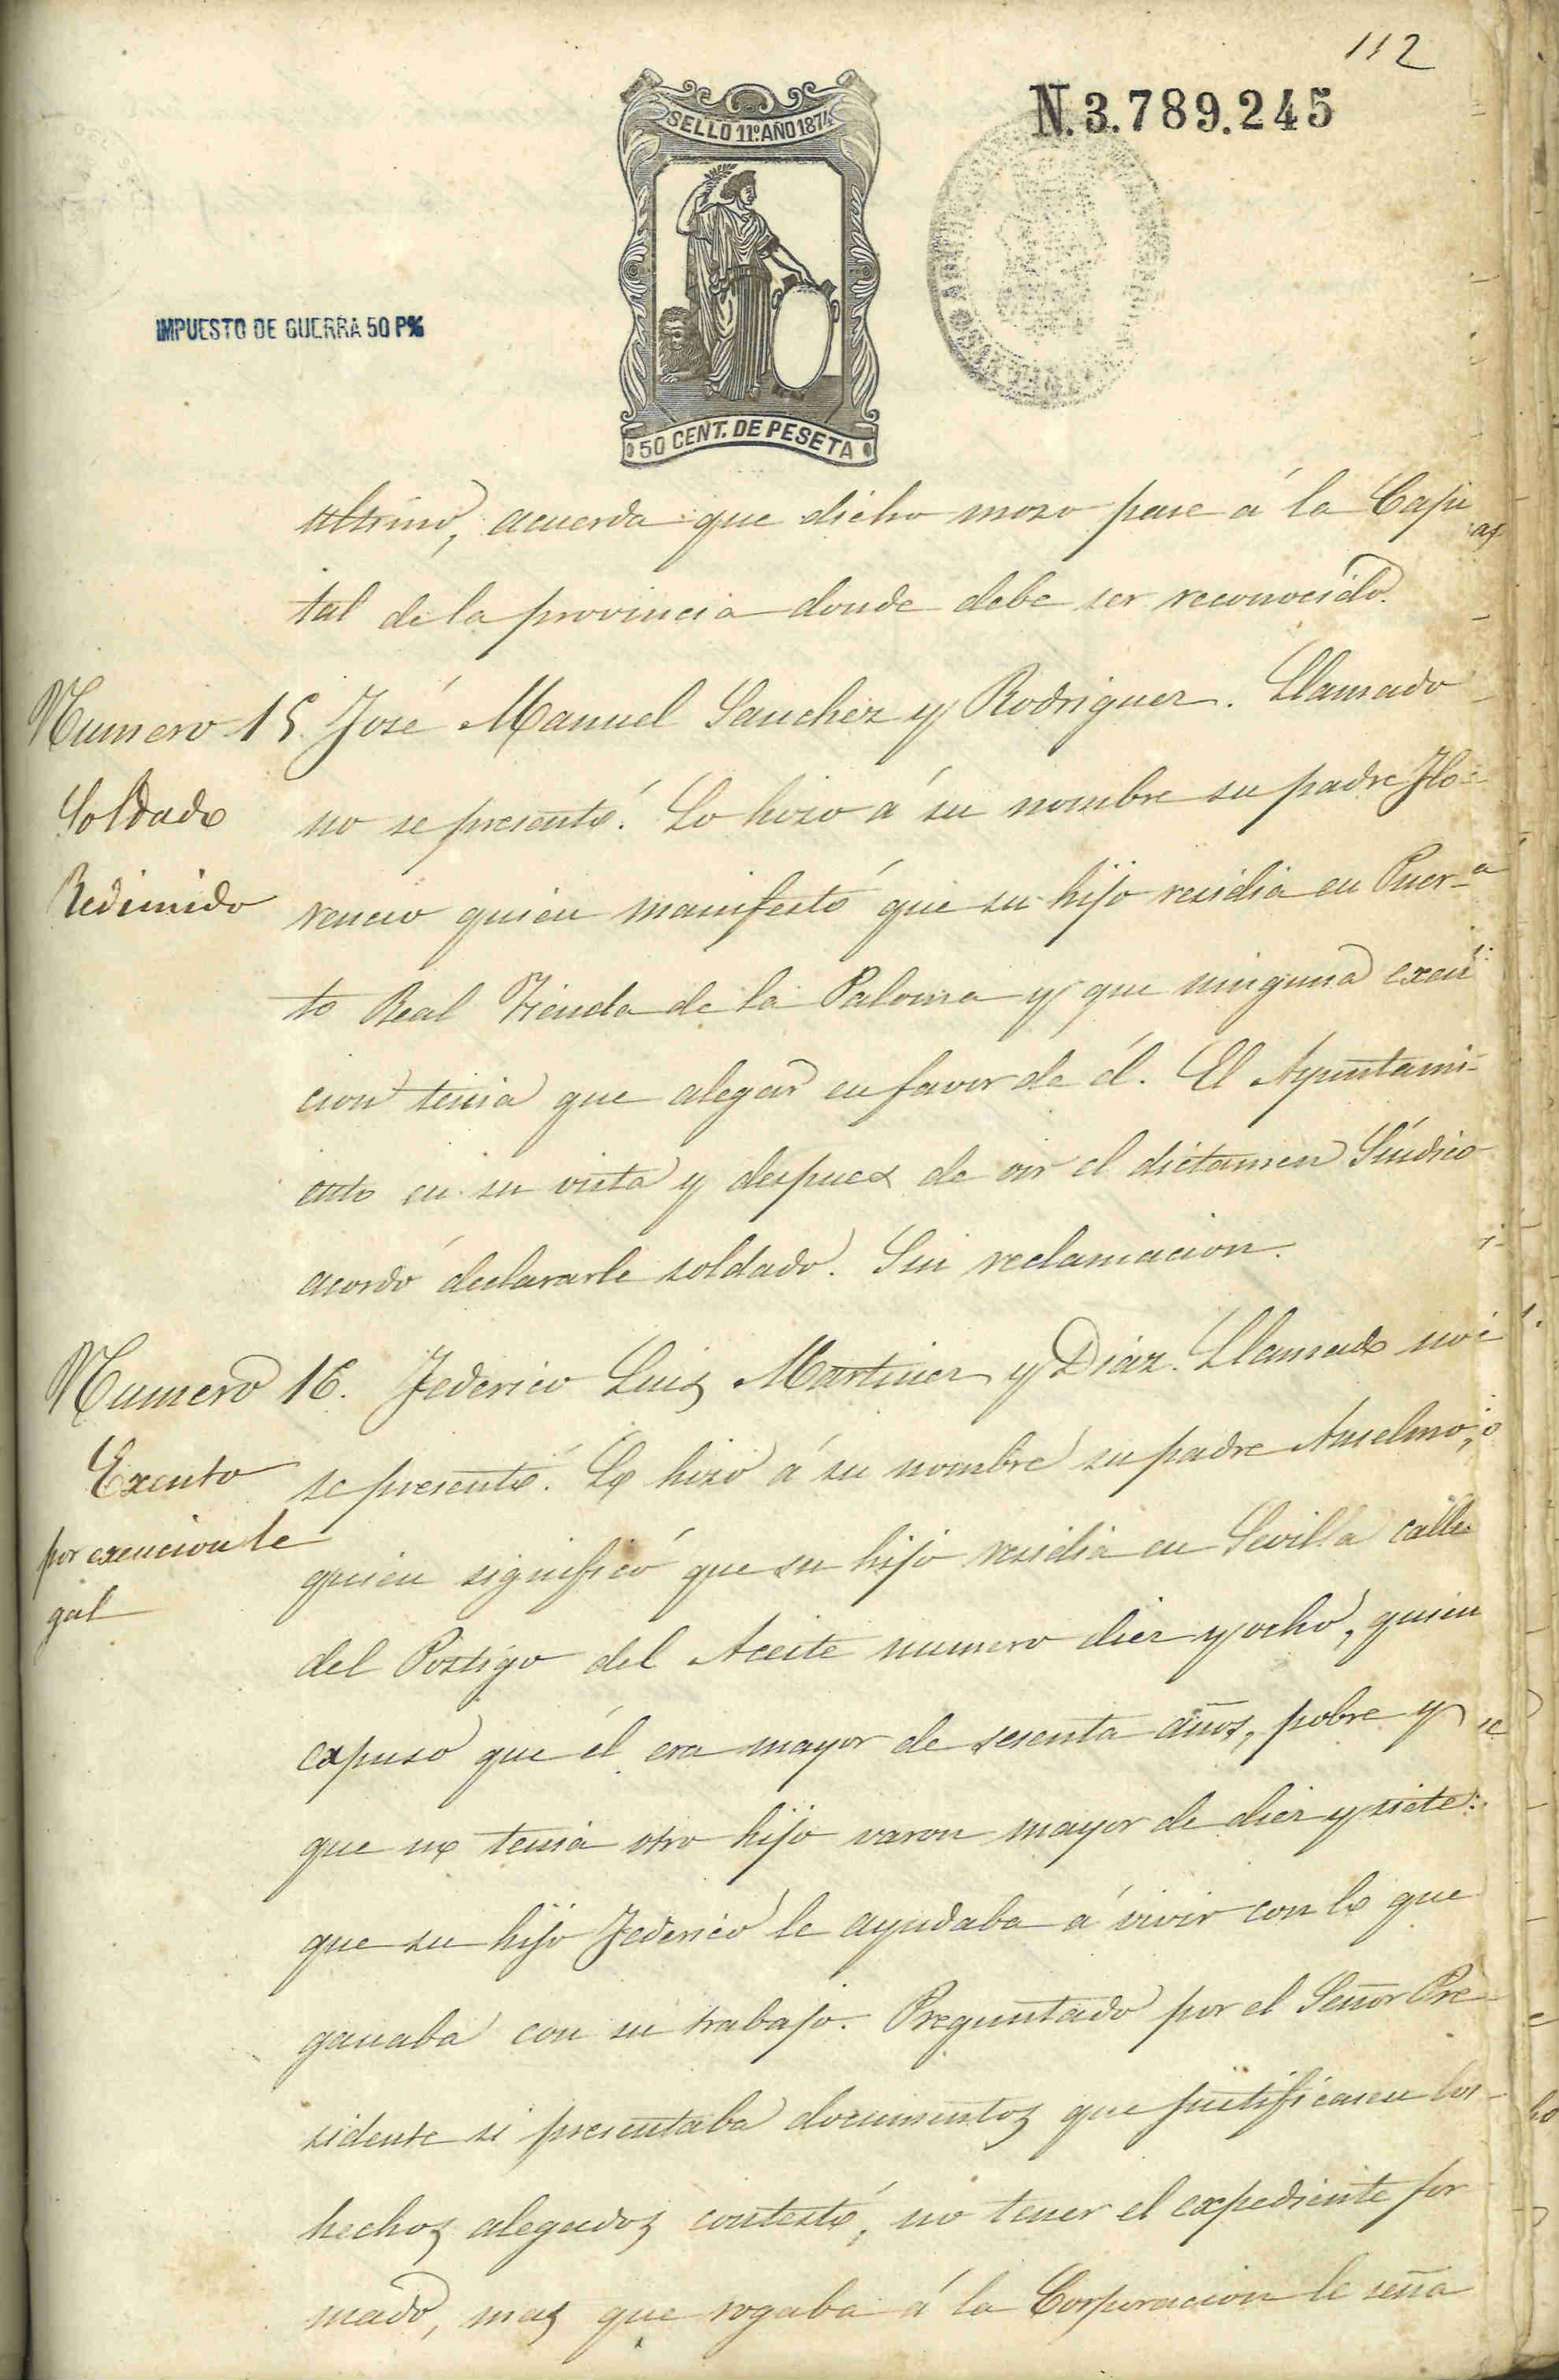 112
N. 3.789.245
SELLO 11º AÑO 1874
IMPUESTO DE GUERRA 50 P%
50 CENT. DE PESETA
ultimo, acuerda que dicho mozo pase á la Capi
tal de la provincia donde debe ser reconocido.
Numero 15. José Manuel Sanchez y Rodriguez. Llamado
Soldado no se presentó. Lo hizo á su nombre su padre Flo-
Redimido rencio quien manifestó que su hijo residia en Puer-
to Real Tienda de la Paloma y que ninguna exen
cion tenia que alegar en favor de él. El Ayuntami-
ento en su vista y despues de oir el dictamen Síndico
acordó declararle soldado. Sin reclamacion.
Numero 16. Federico Luis Martinez y Diaz. Llamado no
Exento se presentó. Lo hizo á su nombre su padre Anselmo,
por exencion le
quien significó que su hijo residia en Sevilla calle
gal
del Postigo del Aceite numero diez y ocho, quien
expuso que él era mayor de sesenta años, pobre y
que no tenia otro hijo varon mayor de diez y siete:
que su hijo Federico le ayudaba á vivir con lo que
ganaba con su trabajo. Preguntado por el Señor Pre-
sidente si presentaba documentos que justificasen los
hechos alegados contestó, no tener el expediente for
mado, mas que rogaba á la Corporacion le seña